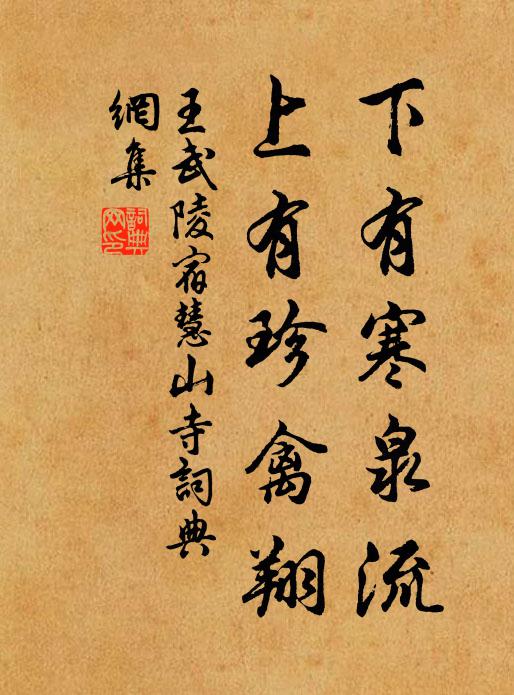 下有寒泉流
上有珍禽翔
王武陵宿慧山寺詞典
網集
詞典網印